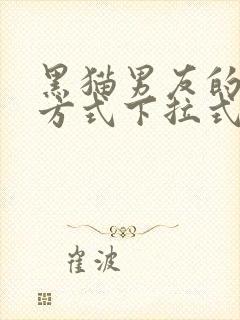 黑猫男友的
方式下拉式
崔波